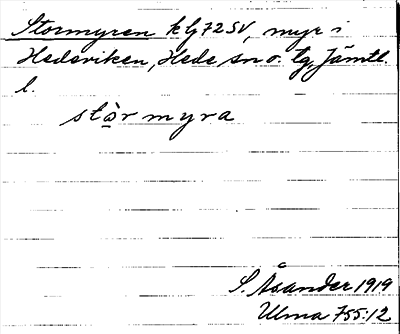 Stormyren kbl 72 SV, myr i
Hedeviken, Hede sn o. tg, Jämtl.
l.
stòrmyra
S. Åsander 1919
Ulma 755:12